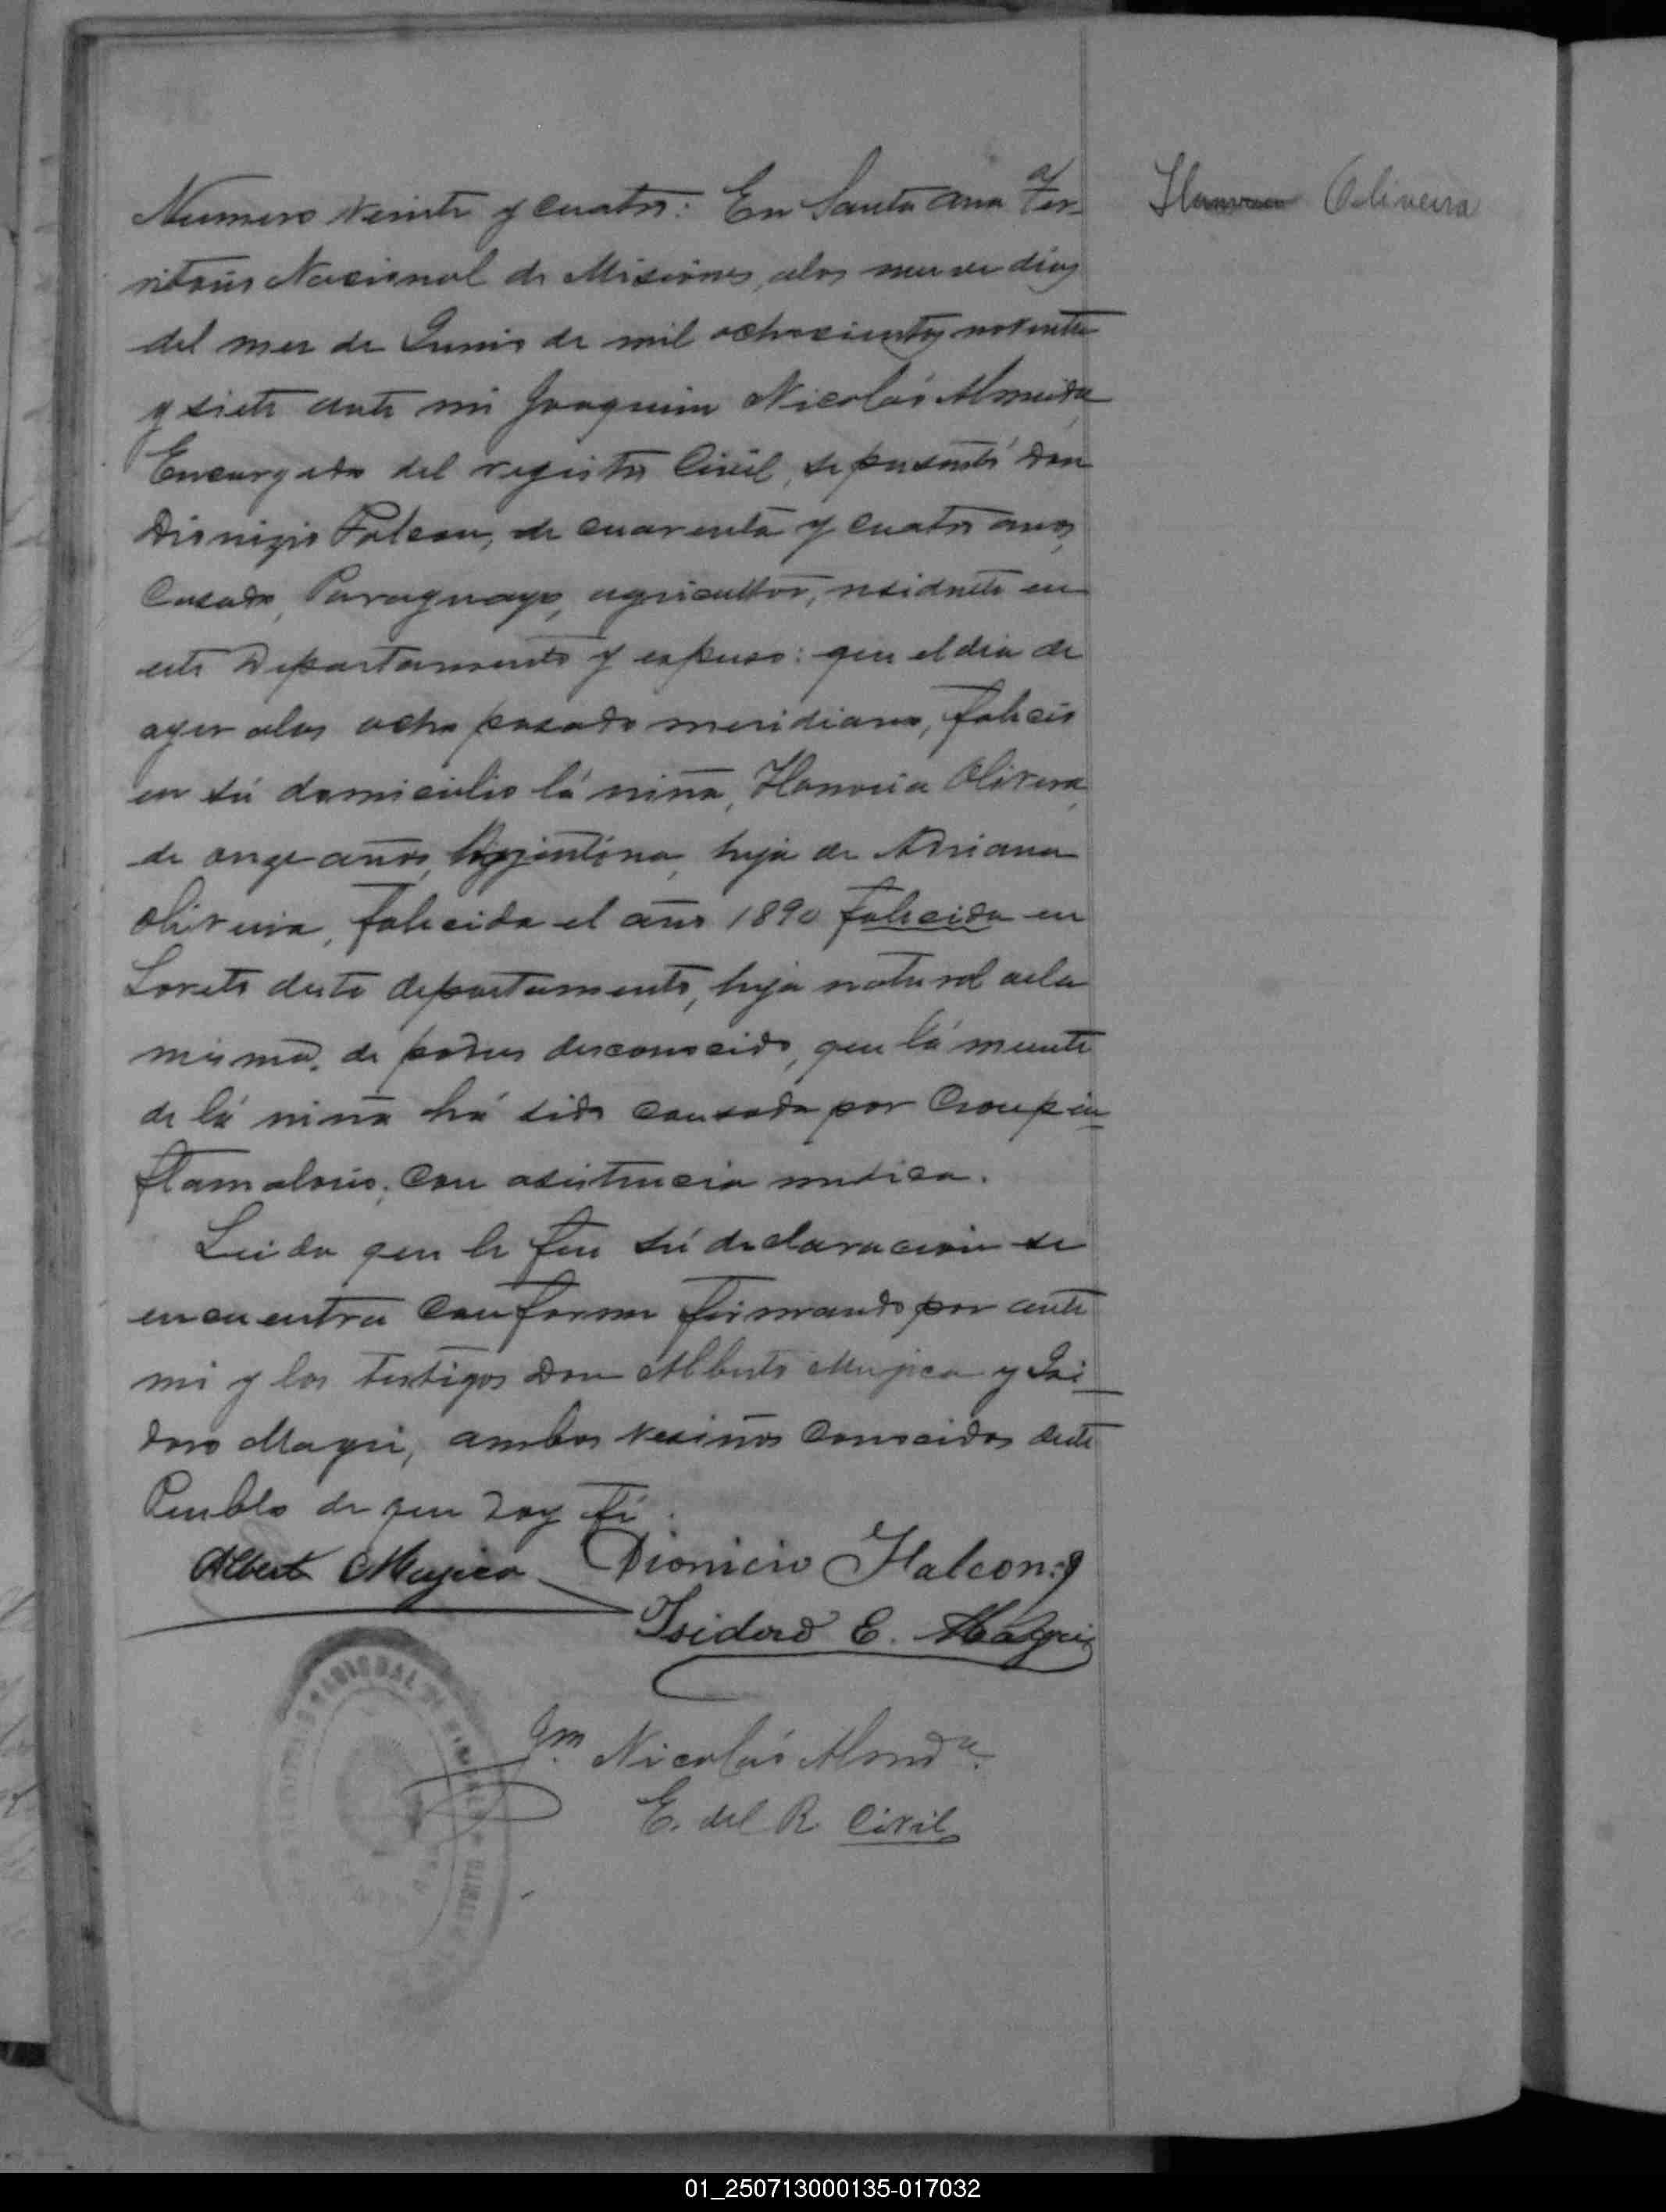 Numero veinte y cuatro: En Santa Ana Ter-
ritorio Nacional de Misiones, alos nueve dias
del mes de Junio de mil ochocientos noventa
y siete ante mi Joaquim Nicolás Almeida,
Encargado del registro Civil, se presentó don
Dionizio Falcon, de cuarenta y cuatro anos,
Casado, Paraguayo, agricultor, residente en
este Departamento y espuso: que el dia de
ayer alas ocho pasado meridiano, falicio
en sú domicilio lá niña, Honoria Olivera,
de onze años, Argjentina, hija de Adriana
Oliveira, falicida el año 1890 falicida en
Loreto deste departamento, hija natural dela
misma, de padres desconocido, que lá muerte
de lá niña há sido causada por Croup in
flamatorio, con asistencia medica.
Leida que le fue sú declaracion se
encuentra conforme firmando por ante
mi y los testigos Don Alberto Mujica y Isi
doro Magri, ambos vesiños conosidos deste
Pueblo de que Doy fé.
Albert Mujica Dionicio Falcon
Isidoro E. Magri
Jm Nicolás Almda.
E. del R. Civil
Oliveira
01_250713000135-017032